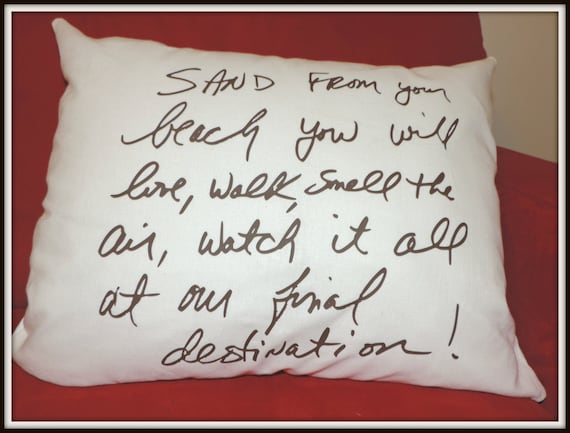 SAND FROM your
beach you will
love, walk, smell the
air, watch it all
at our final
destination!